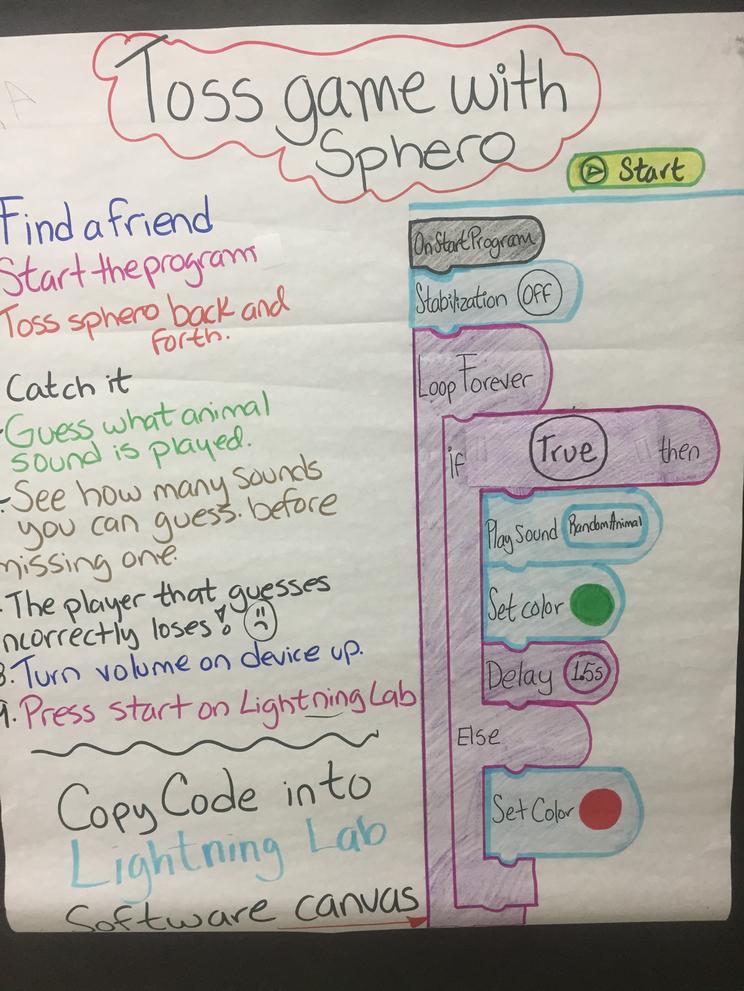 Toss game with
Sphero
Start
Find a friend
Start the program
Toss sphero back and
forth.
Catch it
-Guess what animal
sound is played.
-See how many sounds
you can guess. before
missing one.
. The player that guesses
ncorrectly loses!
8. Turn volume on device up.
9. Press start on Lightning Lab
Copy Code into
Lightning Lab
Software canvas
On Start Program
Stabilization OFF
Loop Forever
if True then
Play Sound Random Animal
Set color
Delay 1.5s
Else
Set Color